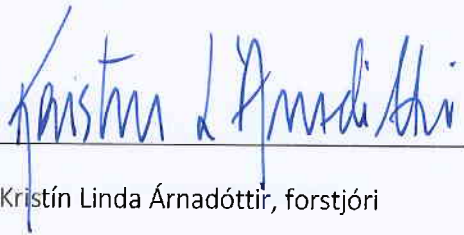 Kristin L Árnadóttir
Kristín Linda Árnadóttir, forstjóri